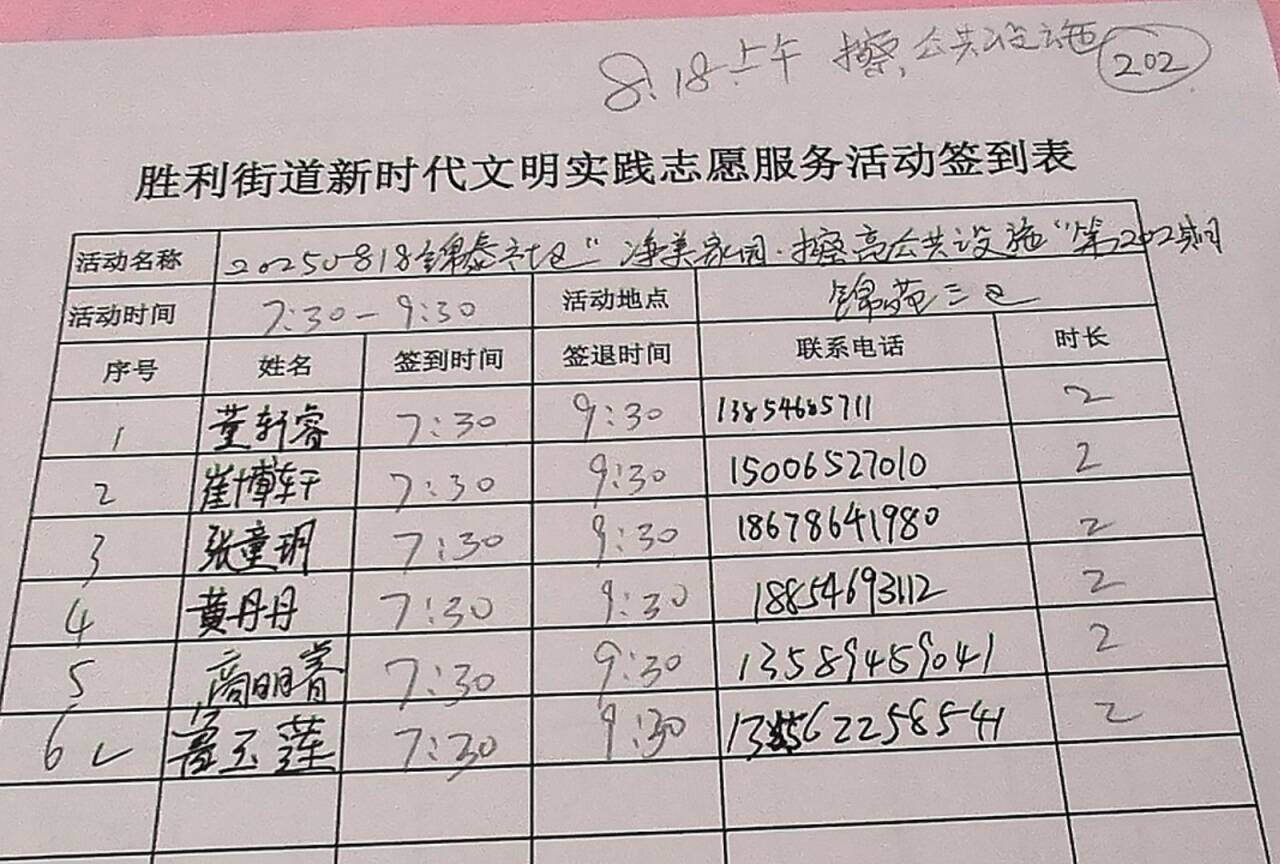 8.18上午 擦公共设施 202
胜利街道新时代文明实践志愿服务活动签到表
活动名称 20250818锦泰社区"净美家园·擦亮公共设施"第202期
活动时间 7:30-9:30 活动地点 锦苑三区
序号 姓名 签到时间 签退时间 联系电话 时长
1 董轩睿 7:30 9:30 13854685711 2
2 崔博轩 7:30 9:30 15006527010 2
3 张童玥 7:30 9:30 18678641980 2
4 黄丹丹 7:30 9:30 18854693112 2
5 7:30 9:30 13589459041 2
6 ✓ 玉莲 7:30 9:30 2